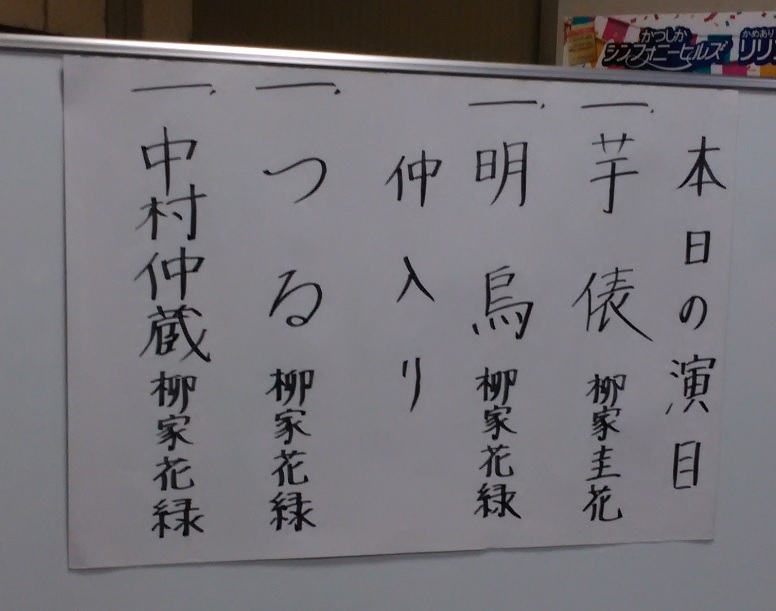 本日の演目
一、芋俵 柳家圭花
一、明烏 柳家花緑
仲入り
一、つる 柳家花緑
一、中村仲蔵 柳家花緑
かつしか
シンフォニーヒルズ
かめあり